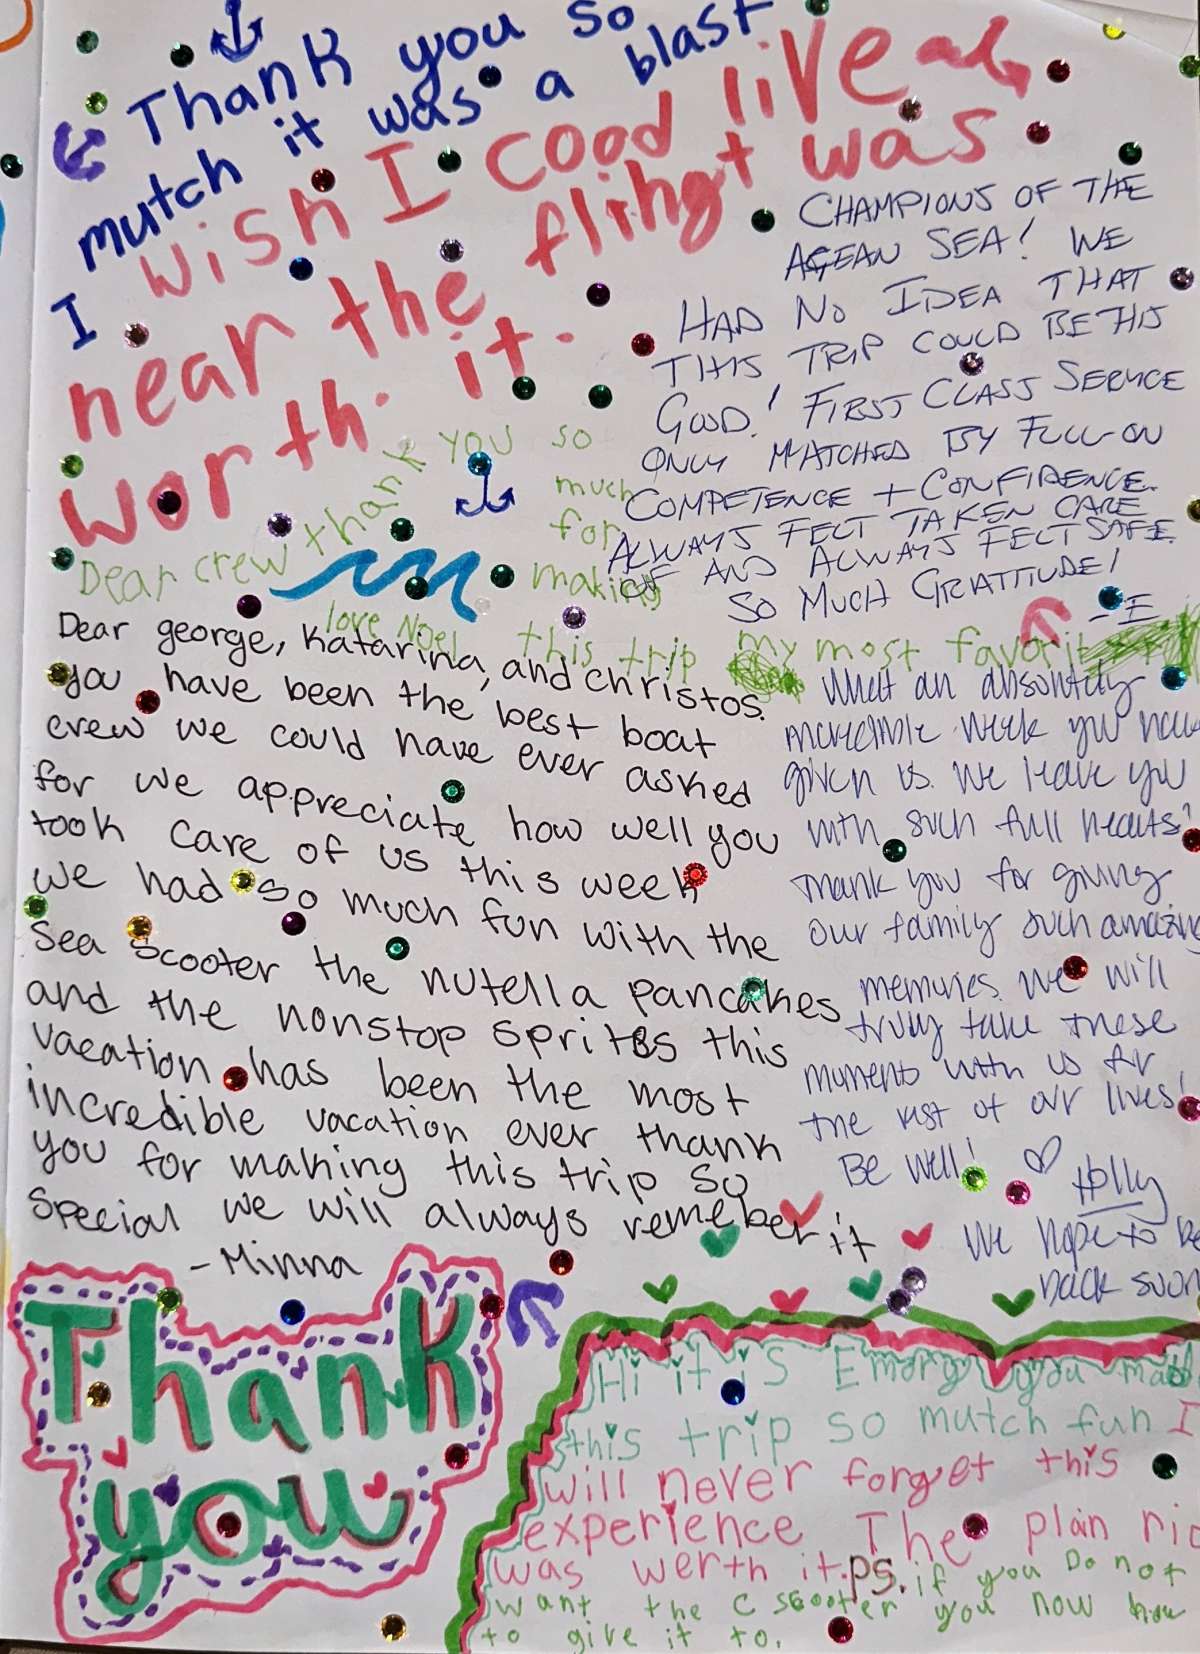 Thank you so
mutch it was a blast
I wish I cood live
near the flihgt was
worth it.
CHAMPIONS OF THE
AGEAN SEA! WE
HAD NO IDEA THAT
THIS TRIP COULD BE THIS
GOOD! FIRST CLASS SERVICE
ONLY MATCHED BY FULL-ON
COMPETENCE + CONFIDENCE.
ALWAYS FELT TAKEN CARE
OF AND ALWAYS FELT SAFE.
SO MUCH GRATTITUDE!
- E
Dear crew thank you so
much
for
making
this trip my most favorit
love Noel
Dear george, Katarina, and christos.
you have been the best boat
crew we could have ever asked
for we appreciate how well you
took care of us this week
we had so much fun with the
Sea Scooter the nutella pancakes
and the nonstop sprites this
vacation has been the most
incredible vacation ever thank
you for making this trip so
special we will always remeber it
- Minna
What an absolutely
incredible week you have
given us. We leave you
with such full hearts!
Thank you for giving
our family such amazing
memories. We will
truly take these
moments with us for
the rest of our lives!
Be well! ♡ Holly
We hope to be
back soon
Thank
you
Hi it is Emory you made
this trip so mutch fun I
will never forget this
experience The plan ri
was werth it. ps. if you Do not
want the c scooter you now how
to give it to.